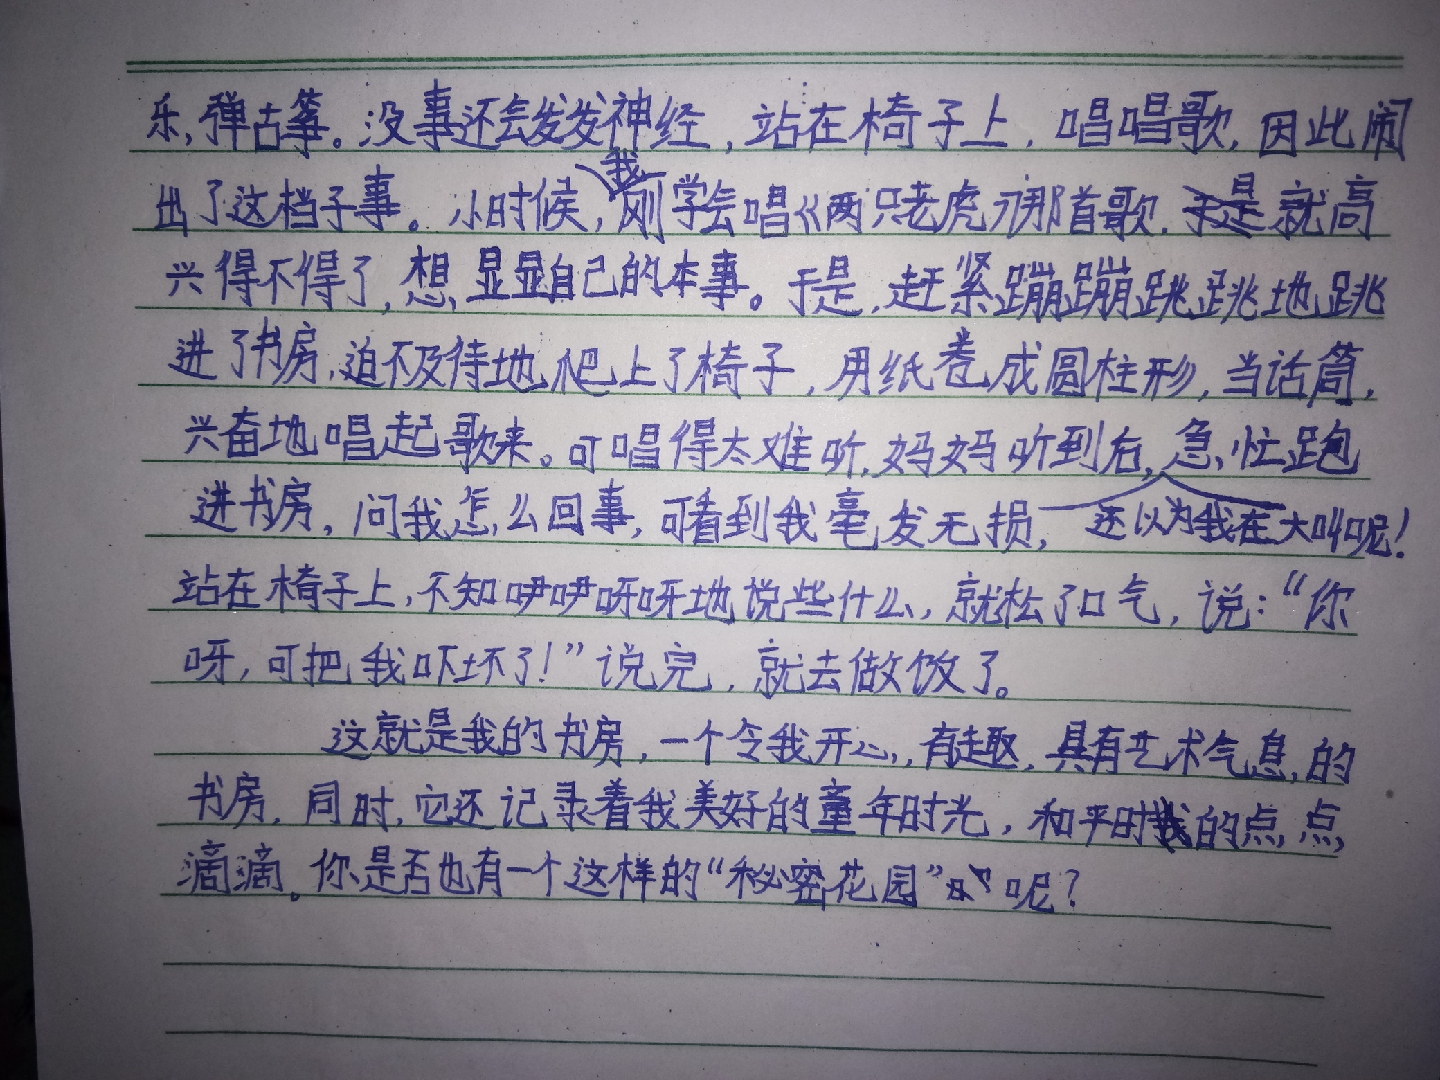 乐,弹古筝。没事还会发发神经,站在椅子上,唱唱歌,因此闹
出了这档子事。小时候,我刚学会唱《两只老虎》那首歌.就高
兴得不得了,想显显自己的本事。于是,赶紧蹦蹦跳跳地跳
进了书房,迫不及待地爬上了椅子,用纸卷成圆柱形,当话筒,
兴奋地唱起歌来。可唱得太难听,妈妈听到后,急忙跑
进书房,问我怎么回事,可看到我毫发无损,
还以为我在大叫呢!
站在椅子上,不知咿咿呀呀地说些什么,就松了口气,说:“你
呀,可把我吓坏了!”说完,就去做饭了。
这就是我的书房,一个令我开心,有趣,具有艺术气息的
书房,同时,它还记录着我美好的童年时光,和平时我的点点
滴滴。你是否也有一个这样的“秘密花园”呢?